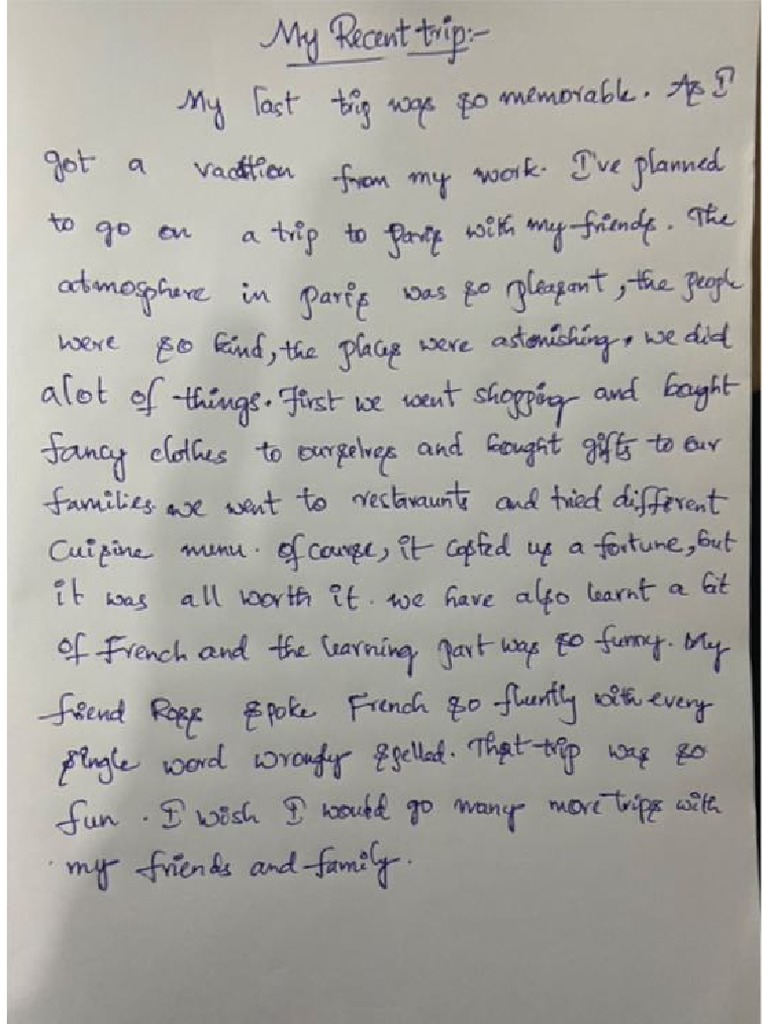 My Recent trip:-
My last trip was so memorable. As I
got a vacation from my work. I've planned
to go on a trip to Paris with my friends. The
atmosphere in paris was so pleasant, the people
were so kind, the places were astonishing, we did
alot of things. First we went shopping and bought
fancy clothes to ourselves and bought gifts to our
families. we went to restaraunts and tried different
Cuisine menu. Of course, it costed us a fortune, but
it was all worth it. we have also learnt a bit
of French and the learning part was so funny. My
friend Ross spoke French so fluntly with every
single word wrongly spelled. That trip was so
fun. I wish I would go many more trips with
my friends and family.